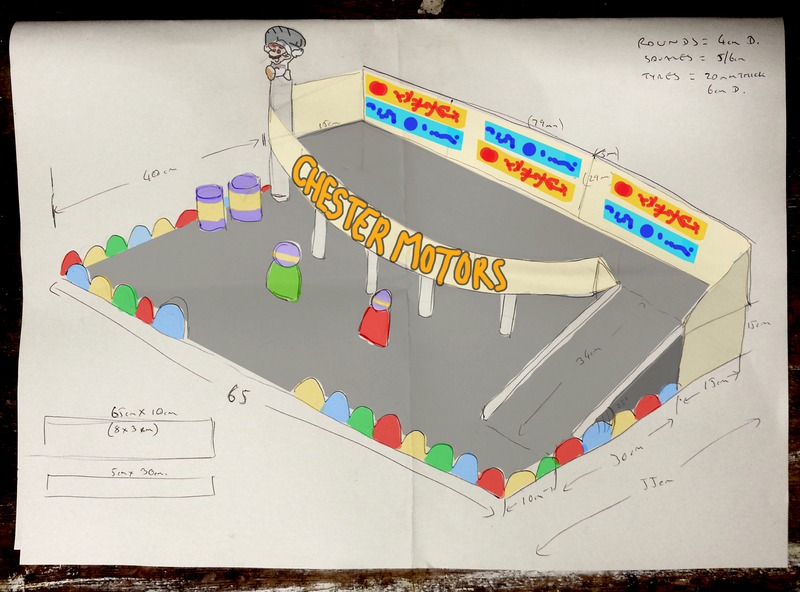 ROUNDS = 4cm D.
SQUARES = 5/6cm
TYRES = 20mm THICK
6cm D.
40cm
15cm
(79cm)
(5m)
(29cm)
CHESTER MOTORS
34cm
15cm
15cm
30cm
10cm
55cm
65
65cm x 10cm
5cm x 30cm